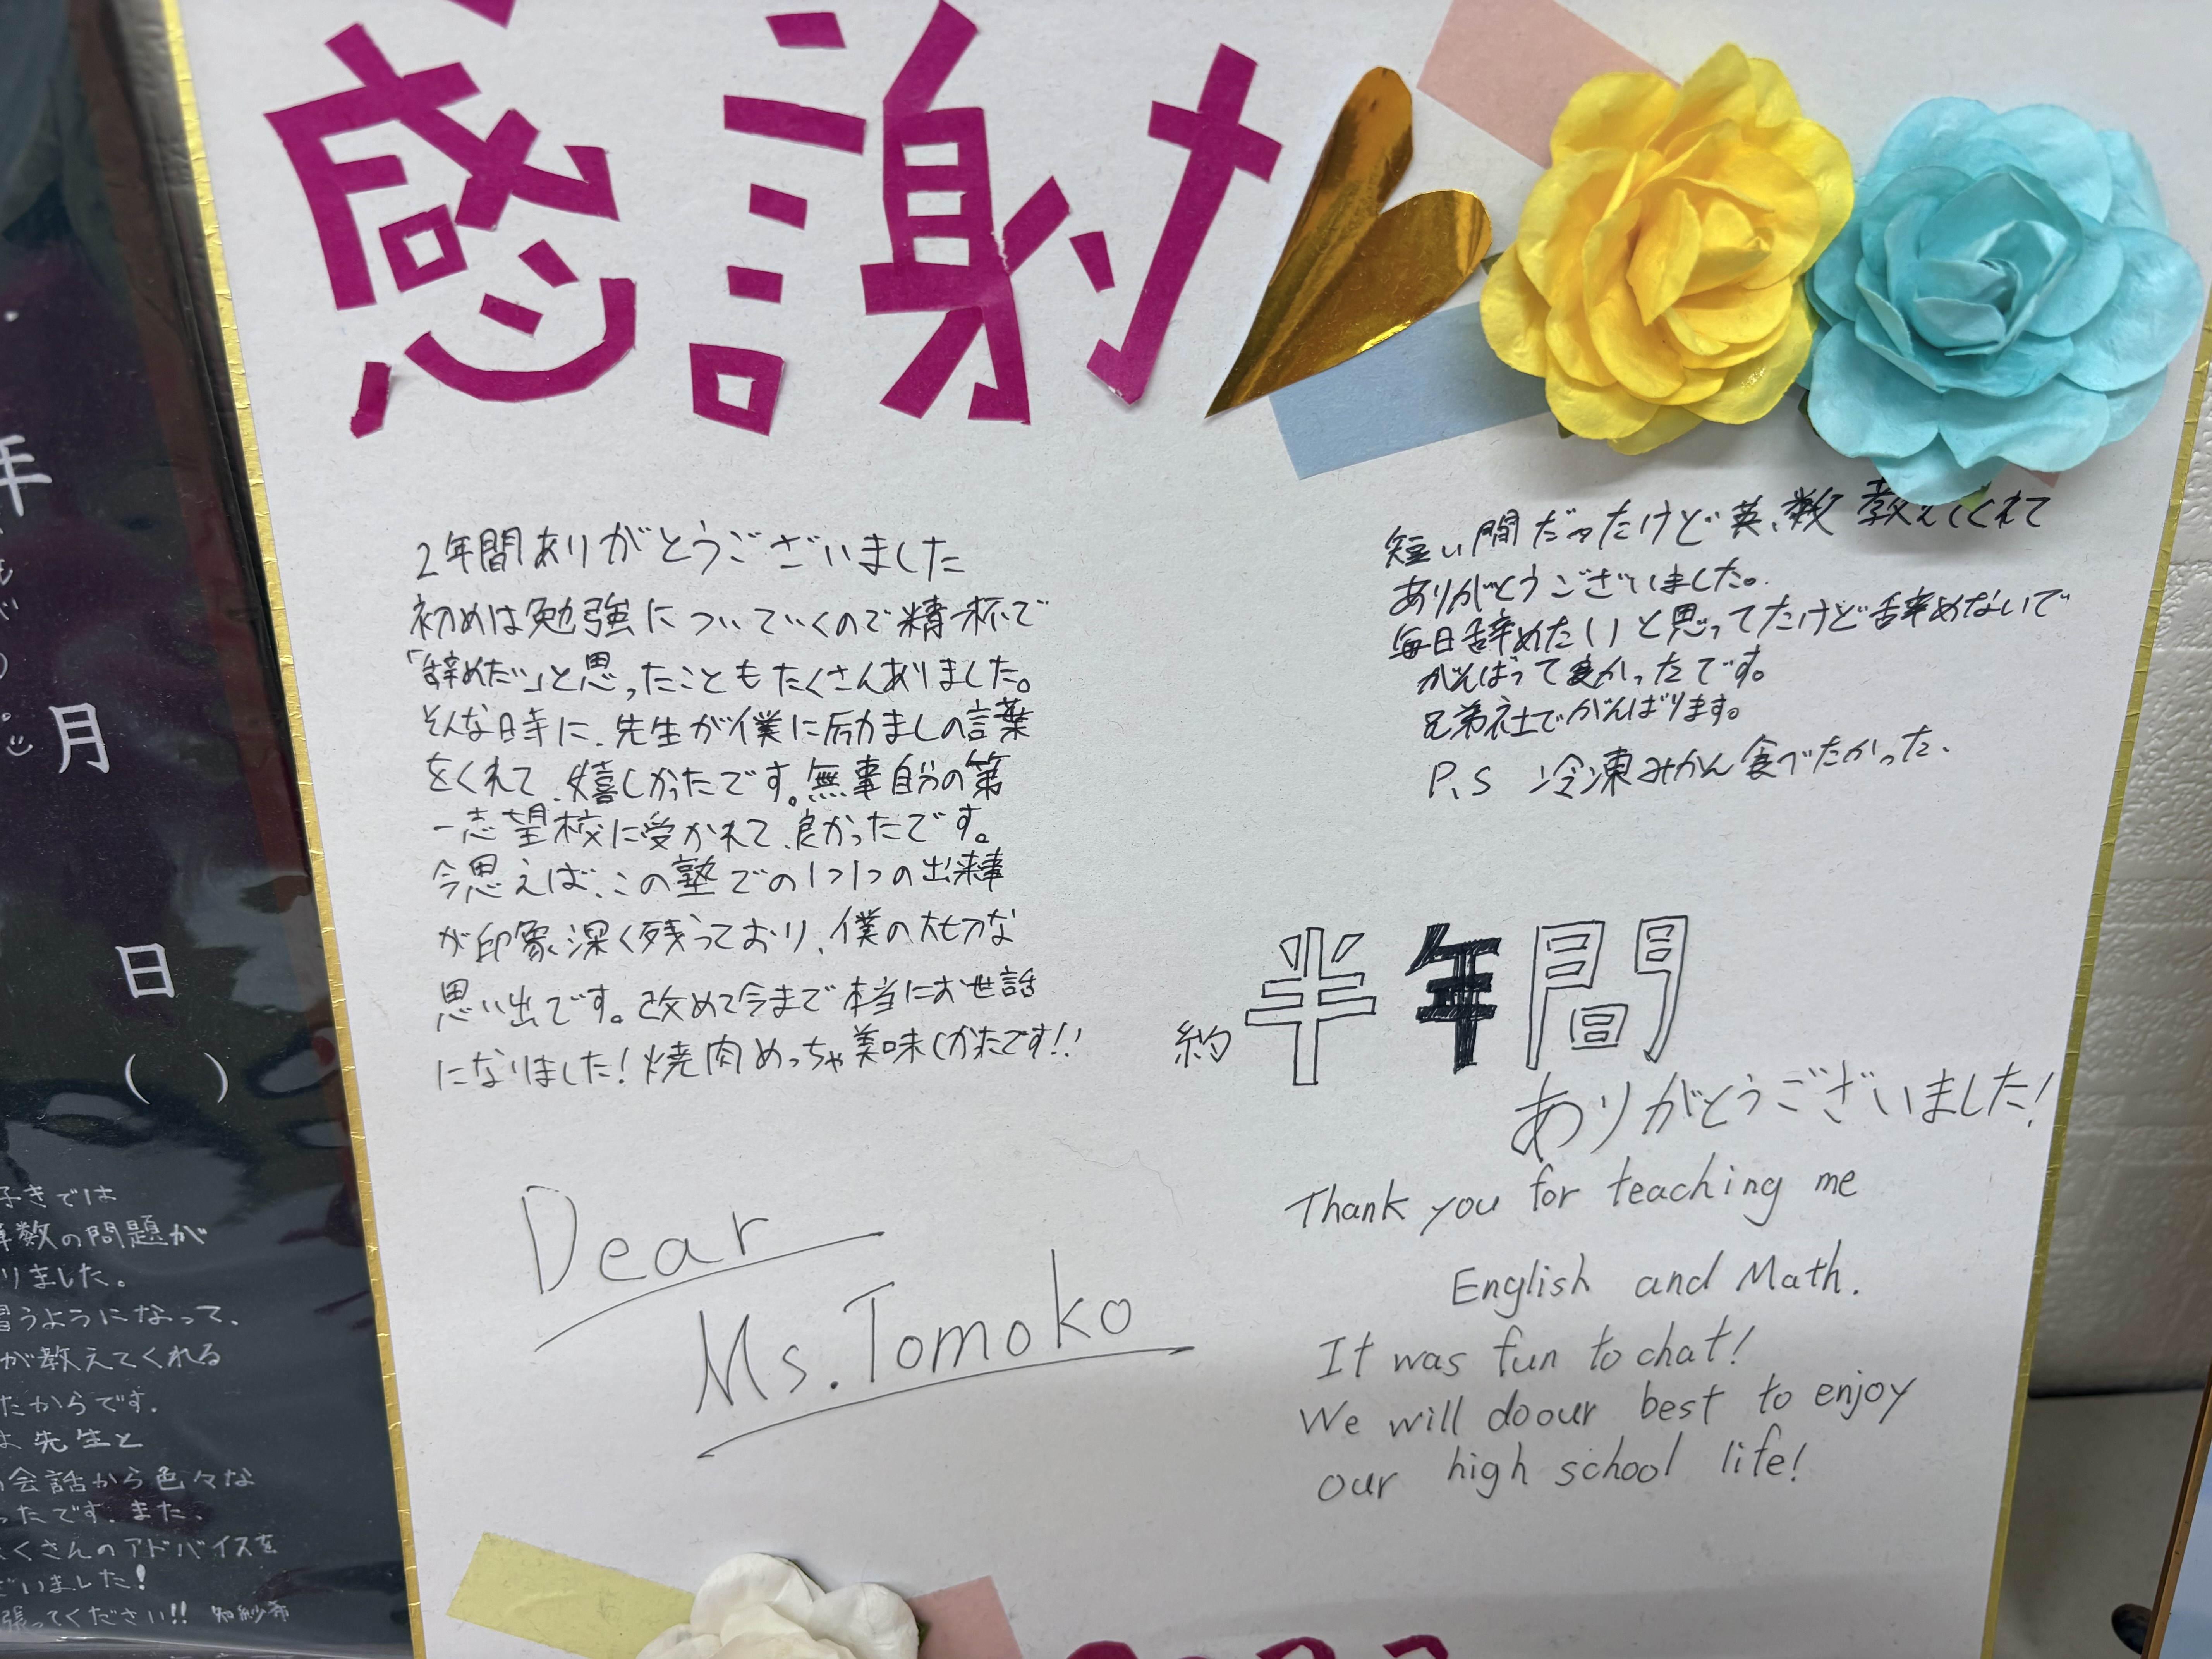 感謝
2年間ありがとうございました
初めは勉強についていくので精一杯で
「辞めたい」と思ったこともたくさんありました。
そんな時に、先生が僕に励ましの言葉
をくれて、嬉しかったです。無事自分の第
一志望校に受かれて、良かったです。
今思えば、この塾での1つ1つの出来事
が印象深く残っており、僕の大切な
思い出です。改めて今まで本当にお世話
になりました!焼肉めっちゃ美味しかたです!!
短い間だったけど英、数 教えてくれて
ありがとうございました。
毎日辞めたいと思ってたけど辞めないで
がんばって良かったです。
兄弟社でがんばります。
P.S 冷凍みかん食べたかった、
約半年間
ありがとうございました!
Dear
Ms. Tomoko
Thank you for teaching me
English and Math.
It was fun to chat!
We will do our best to enjoy
our high school life!
年
月
日
( )
子きでは
算数の問題が
りました。
習うようになって、
が教えてくれる
たからです.
先生と
会話から色々な
ったです.また、
くさんのアドバイスを
ざいました!
張ってください!!